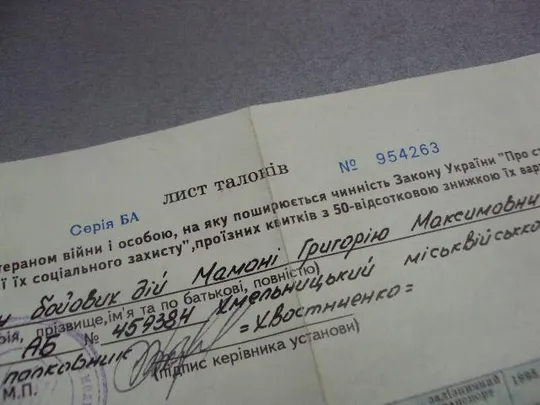 лист талонів
Серія БА № 954263
тераном війни і особою, на яку поширюється чинність Закону України "Про ст
ії їх соціального захисту", проїзних квитків з 50-відсотковою знижкою їх варт
у бойовик дій Мамоні Григорію Максимович
рія, прізвище, ім'я та по батькові, повністю)
АБ № 459384 Хмельницький міськвійсько
полковник =Хвостниченко=
М.П. (підпис керівника установи)
залізничний
1995